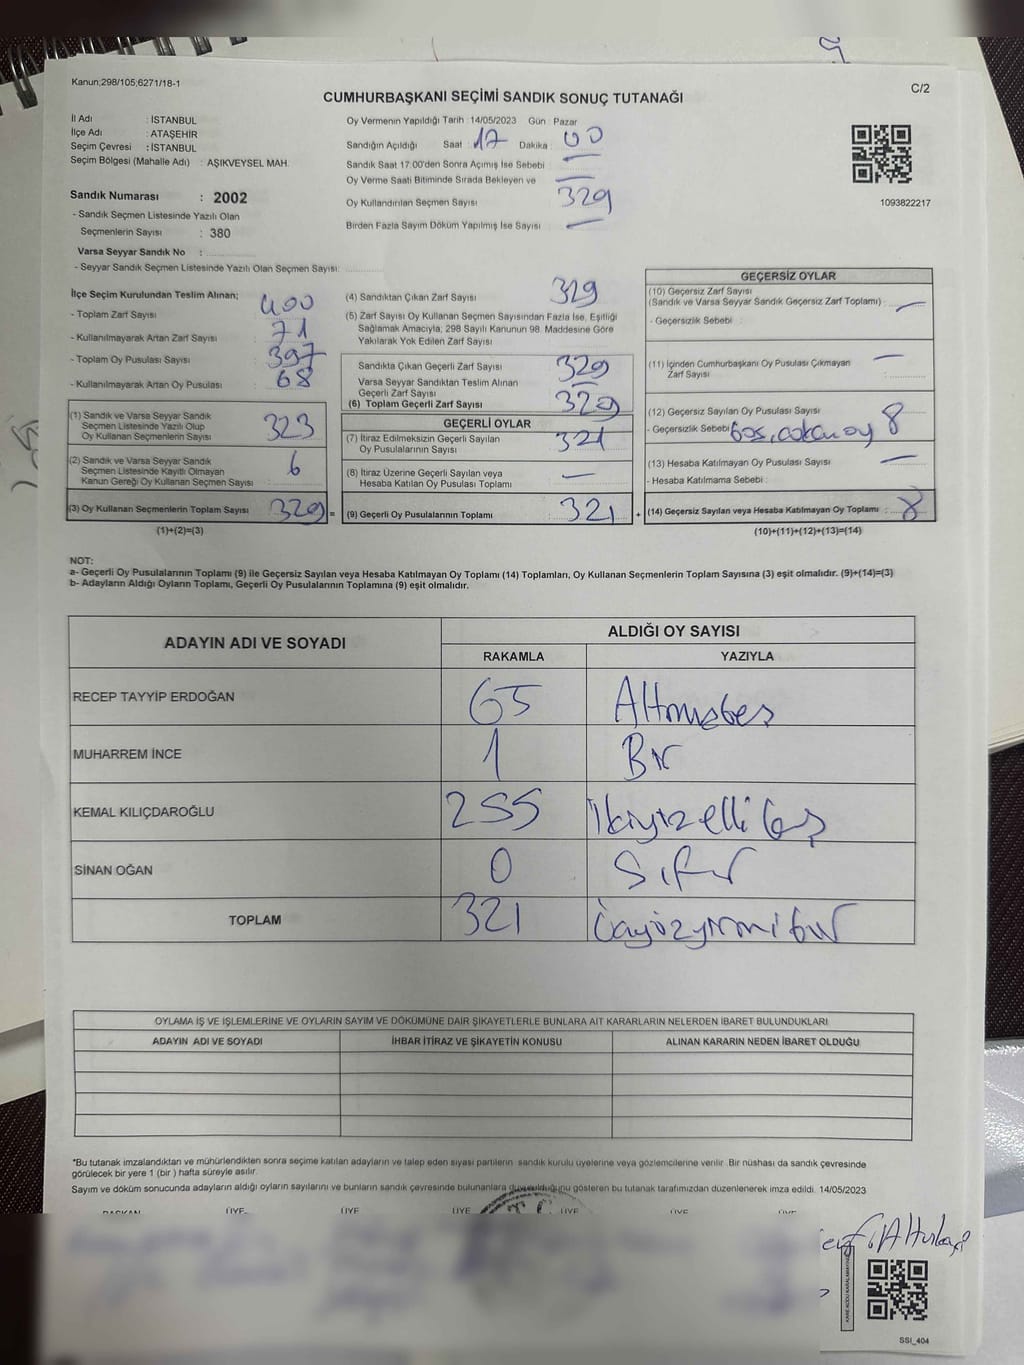 Kanun;298/105;6271/18-1
C/2
CUMHURBAŞKANI SEÇİMİ SANDIK SONUÇ TUTANAĞI
İl Adı : İSTANBUL
İlçe Adı : ATAŞEHİR
Seçim Çevresi : İSTANBUL
Seçim Bölgesi (Mahalle Adı) : AŞIKVEYSEL MAH.
Sandık Numarası : 2002
- Sandık Seçmen Listesinde Yazılı Olan
Seçmenlerin Sayısı : 380
Varsa Seyyar Sandık No :
- Seyyar Sandık Seçmen Listesinde Yazılı Olan Seçmen Sayısı:
Oy Vermenin Yapıldığı Tarih : 14/05/2023 Gün : Pazar
Sandığın Açıldığı Saat : 17 Dakika : 00
Sandık Saat 17:00'den Sonra Açılmış İse Sebebi : —
Oy Verme Saati Bitiminde Sırada Bekleyen ve —
Oy Kullandırılan Seçmen Sayısı : 329
Birden Fazla Sayım Döküm Yapılmış İse Sayısı : —
1093822217
İlçe Seçim Kurulundan Teslim Alınan;
- Toplam Zarf Sayısı : 400
- Kullanılmayarak Artan Zarf Sayısı : 71
- Toplam Oy Pusulası Sayısı : 397
- Kullanılmayarak Artan Oy Pusulası : 68
(1) Sandık ve Varsa Seyyar Sandık
Seçmen Listesinde Yazılı Olup
Oy Kullanan Seçmenlerin Sayısı : 323
(2) Sandık ve Varsa Seyyar Sandık
Seçmen Listesinde Kayıtlı Olmayan
Kanun Gereği Oy Kullanan Seçmen Sayısı : 6
(3) Oy Kullanan Seçmenlerin Toplam Sayısı : 329 =
(1)+(2)=(3)
(4) Sandıktan Çıkan Zarf Sayısı : 329
(5) Zarf Sayısı Oy Kullanan Seçmen Sayısından Fazla İse, Eşitliği
Sağlamak Amacıyla, 298 Sayılı Kanunun 98. Maddesine Göre
Yakılarak Yok Edilen Zarf Sayısı :
Sandıkta Çıkan Geçerli Zarf Sayısı : 329
Varsa Seyyar Sandıktan Teslim Alınan
Geçerli Zarf Sayısı : —
(6) Toplam Geçerli Zarf Sayısı : 329
GEÇERLİ OYLAR
(7) İtiraz Edilmeksizin Geçerli Sayılan
Oy Pusulalarının Sayısı : 321
(8) İtiraz Üzerine Geçerli Sayılan veya
Hesaba Katılan Oy Pusulası Toplamı : —
(9) Geçerli Oy Pusulalarının Toplamı : 321 +
GEÇERSİZ OYLAR
(10) Geçersiz Zarf Sayısı
(Sandık ve Varsa Seyyar Sandık Geçersiz Zarf Toplamı) : —
- Geçersizlik Sebebi :
(11) İçinden Cumhurbaşkanı Oy Pusulası Çıkmayan
Zarf Sayısı : —
(12) Geçersiz Sayılan Oy Pusulası Sayısı : 8
- Geçersizlik Sebebi : boş, oy
(13) Hesaba Katılmayan Oy Pusulası Sayısı : —
- Hesaba Katılmama Sebebi :
(14) Geçersiz Sayılan veya Hesaba Katılmayan Oy Toplamı : 8
(10)+(11)+(12)+(13)=(14)
NOT:
a- Geçerli Oy Pusulalarının Toplamı (9) ile Geçersiz Sayılan veya Hesaba Katılmayan Oy Toplamı (14) Toplamları, Oy Kullanan Seçmenlerin Toplam Sayısına (3) eşit olmalıdır. (9)+(14)=(3)
b- Adayların Aldığı Oyların Toplamı, Geçerli Oy Pusulalarının Toplamına (9) eşit olmalıdır.
ADAYIN ADI VE SOYADI ALDIĞI OY SAYISI
RAKAMLA YAZIYLA
RECEP TAYYİP ERDOĞAN 65 Altmışbeş
MUHARREM İNCE 1 Bir
KEMAL KILIÇDAROĞLU 255 İkiyüzelli beş
SİNAN OĞAN 0 Sıfır
TOPLAM 321 Üçyüzyirmibir
OYLAMA İŞ VE İŞLEMLERİNE VE OYLARIN SAYIM VE DÖKÜMÜNE DAİR ŞİKAYETLERLE BUNLARA AİT KARARLARIN NELERDEN İBARET BULUNDUKLARI
ADAYIN ADI VE SOYADI İHBAR İTİRAZ VE ŞİKAYETİN KONUSU ALINAN KARARIN NEDEN İBARET OLDUĞU
*Bu tutanak imzalandıktan ve mühürlendikten sonra seçime katılan adayların ve talep eden siyasi partilerin sandık kurulu üyelerine veya gözlemcilerine verilir. Bir nüshası da sandık çevresinde
görülecek bir yere 1 (bir ) hafta süreyle asılır.
Sayım ve döküm sonucunda adayların aldığı oyların sayılarını ve bunların sandık çevresinde bulunanlara duyurulduğunu gösteren bu tutanak tarafımızdan düzenlenerek imza edildi. 14/05/2023
BAŞKAN ÜYE ÜYE ÜYE ÜYE ÜYE ÜYE
T.C.
SSI_404